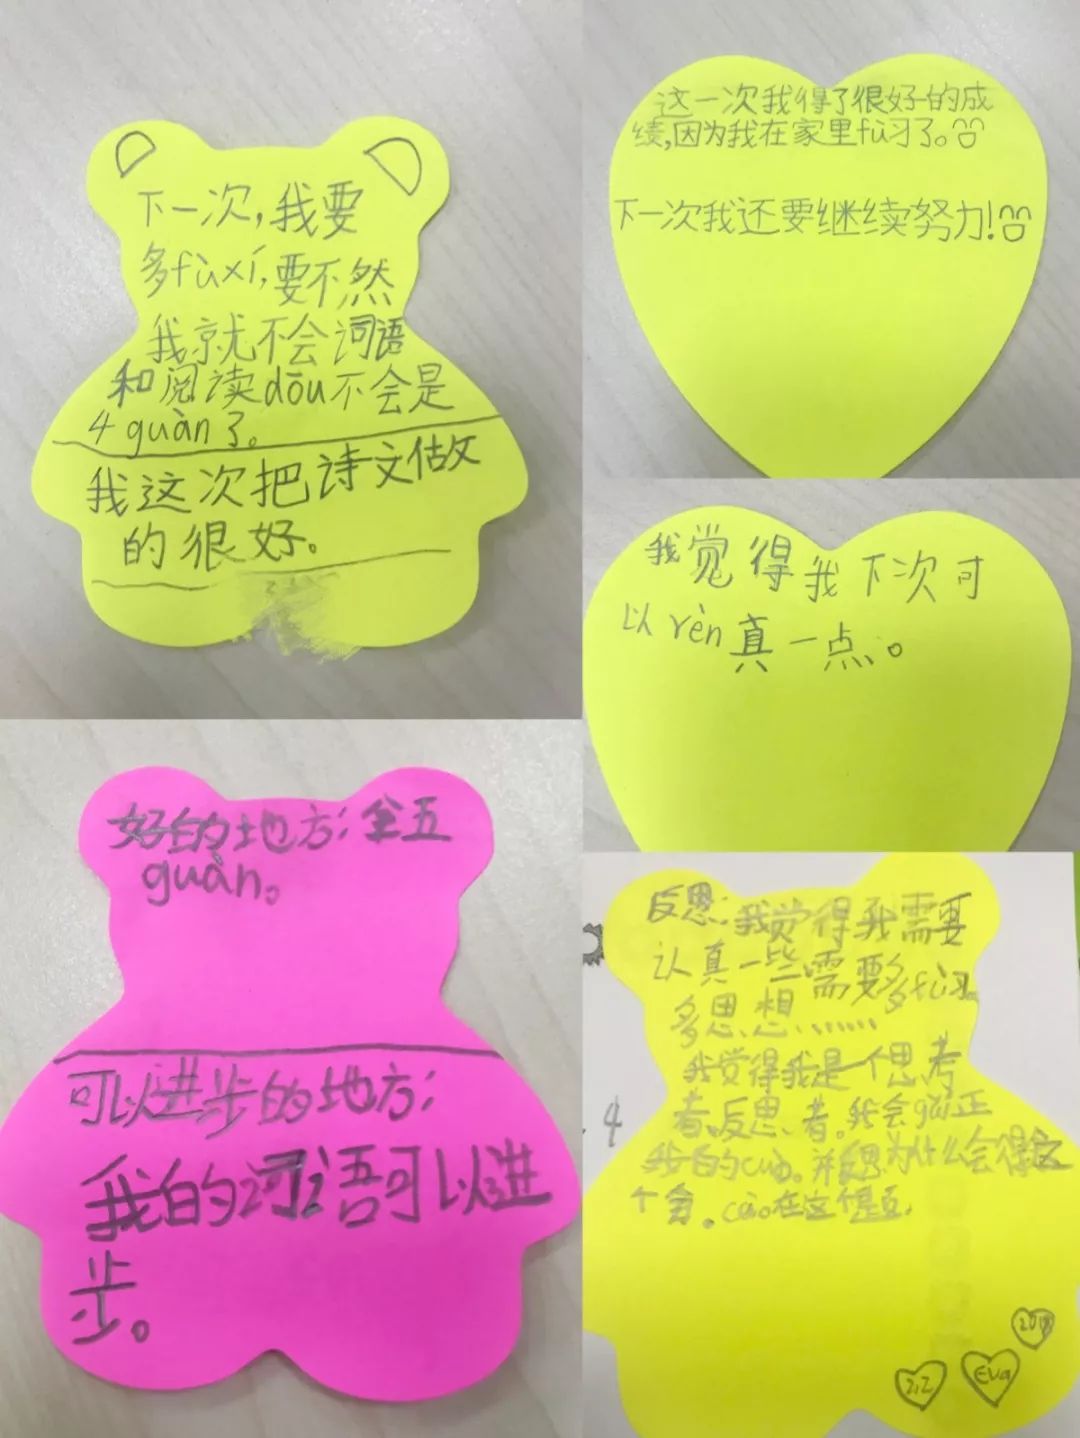 下一次，我要
多fùxí，要不然
我就不会词语
和阅读dōu不会是
4 guàn了。
我这次把诗文做
的很好。
这一次我得了很好的成
绩，因为我在家里fù习了。
下一次我还要继续努力！
我觉得我下次可
以rèn真一点。
好的地方：全五
guàn。
可以进步的地方：
我的词语可以进
步。
反思：我觉得我需要
认真一些需要多fù习
多思想……
我觉得我是一个思考
者、反思者。我会正
我的cuò。并思为什么会得这
个。cuò在这个是
4
2018
2,2
Eva